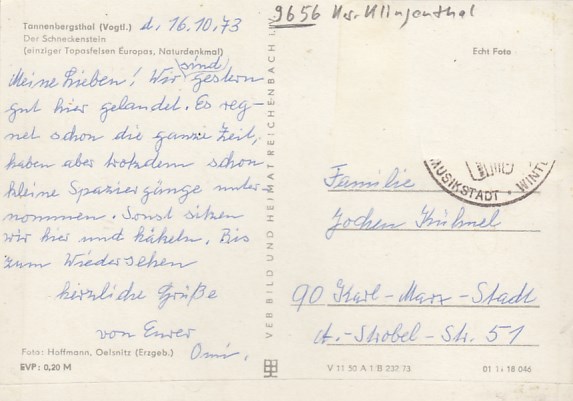 Tannenbergsthal (Vogtl.) d. 16.10.73
Der Schneckenstein
(einziger Topasfelsen Europas, Naturdenkmal)
Meine Lieben! Wir sind gestern
gut hier gelandet. Es reg-
net schon die ganze Zeit,
haben aber trotzdem schon
kleine Spaziergänge unter-
nommen. Sonst sitzen
wir hier und häkeln. Bis
zum Wiedersehen
herzliche Grüße
von Eurer
Omi.
Foto: Hoffmann, Oelsnitz (Erzgeb.)
EVP: 0,20 M
VEB BILD UND HEIMAT REICHENBACH I. V.
9656 Krs. Klingenthal
Echt Foto
MUSIKSTADT · WINT
Familie
Jochen Kühnel
90 Karl-Marx-Stadt
A.-Strobel-Str. 51
V 11 50 A 1 B 237 73 01 11 18 046